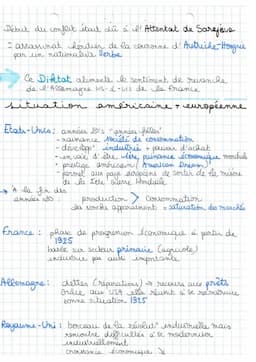 Début du conflit était dû à l'Attentat de Sarajevo
= assassinat héritier de la couronne d'Autriche-Hongrie
par un nationaliste Serbe
Ce Diktat alimente le sentiment de revanche
de l'Allemagne vis-à-vis de la France
situation américaine + européenne
États-Unis : années 20's "années folles"
- naissance société de consommation
- développ' industrie + pouvoir d'achat
- en voie d'être 1ère puissance économique mondiale
- prestige américain (American Dream)
- permet aux pays européens de sortir de la misère
de la 1ère Guerre Mondiale
→ À la fin des
années 20's production > consommation
les stocks apparaissent = saturation des marchés
France : phase de progression économique à partir de
1925
basée sur secteur primaire (agricole)
industrie pas autant importante
Allemagne : dettes (réparations) → recours aux prêts
Grâce aux USA elle réussit à se reconstruire
bonne situation 1925
Royaume-Uni : berceau de la révolut° industrielle mais
rencontre difficultés à se moderniser
industriellement
croissance économique ↘